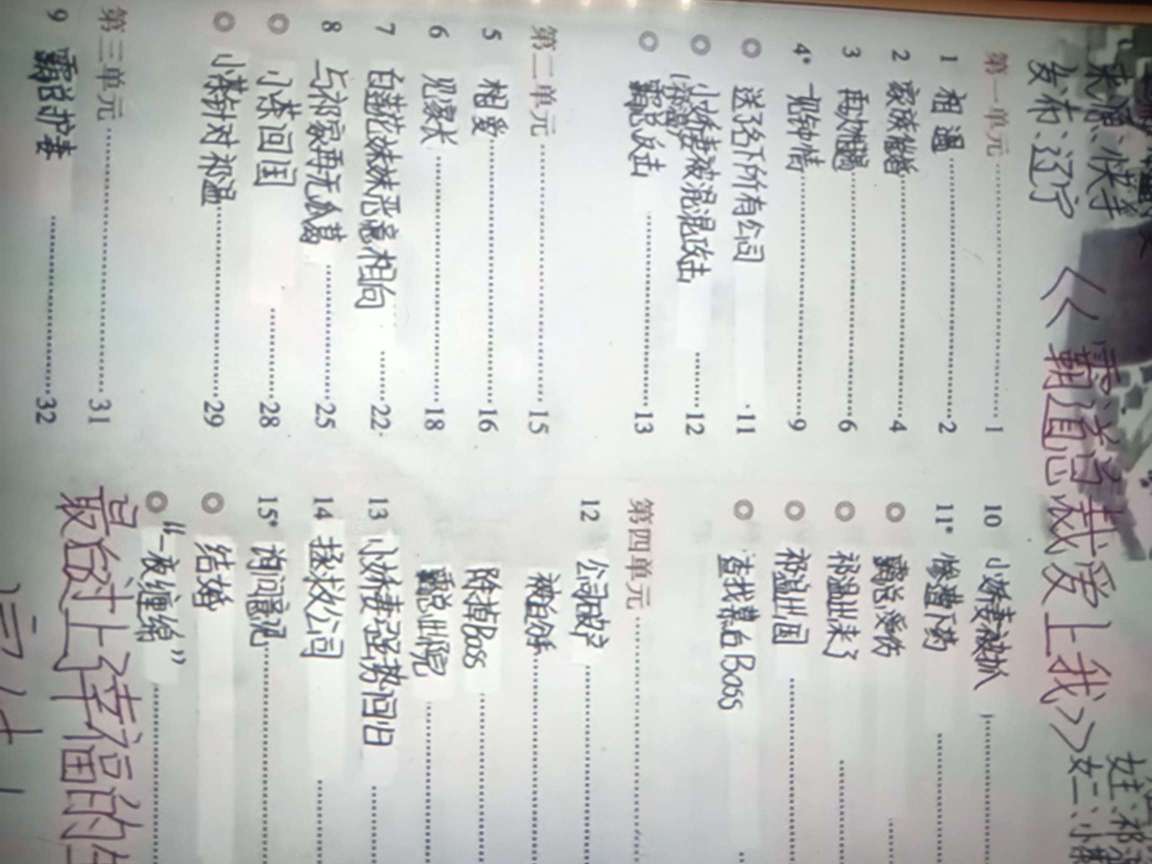 来源:快手
发布:辽宁
《霸道总裁爱上我》
女主:祁
女二:小
第一单元 1
1 相遇 2
2 家族联婚 4
3 再次相遇 6
4* 一见钟情 9
◎ 送名下所有公司 11
◎ 小娇妻被混混攻击 12
◎ 霸总反击 13
第二单元 15
5 相爱 16
6 见家长 18
7 白莲花妹妹恶意相向 22
8 与祁家再无瓜葛 25
◎ 小茶回国 28
◎ 小茶针对祁温 29
第三单元 31
9 霸总护妻 32
10 小娇妻被抓
11* 惨遭下药
◎ 霸总受伤
◎ 祁温出来了
◎ 祁温出国
◎ 查找幕后Boss
第四单元
12 公司破产
被台
除掉Boss
霸总出院
13 小娇妻强势回归
14 拯救公司
15* 询问意见
◎ 结婚
◎ “一夜缠绵”
最后过上幸福的生